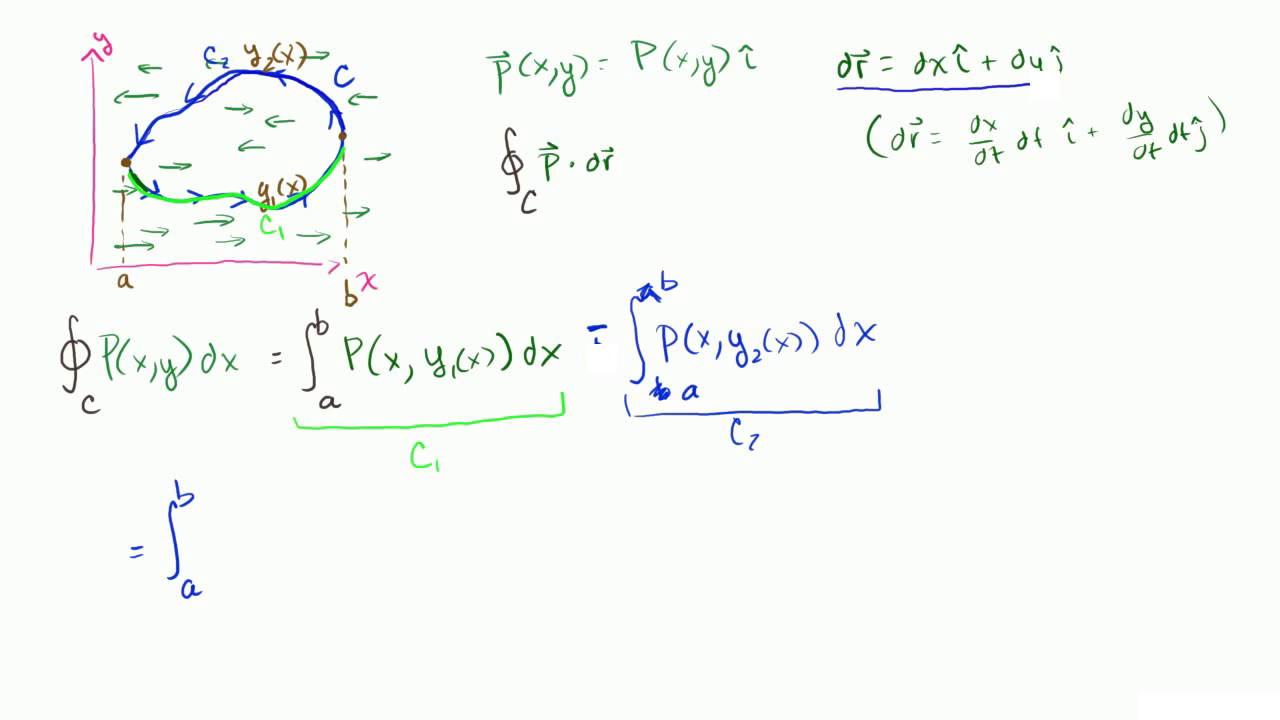 y
C₂ y₂(x)
C
y₁(x)
C₁
a
b x
P⃗(x,y) = P(x,y) î
dr⃗ = dx î + dy ĵ
(dr⃗ = dx/dt dt î + dy/dt dt ĵ)
∮_C P⃗ · dr⃗
∮_C P(x,y) dx = ∫_a^b P(x, y₁(x)) dx - ∫_a^b P(x, y₂(x)) dx
C₁ C₂
= ∫_a^b